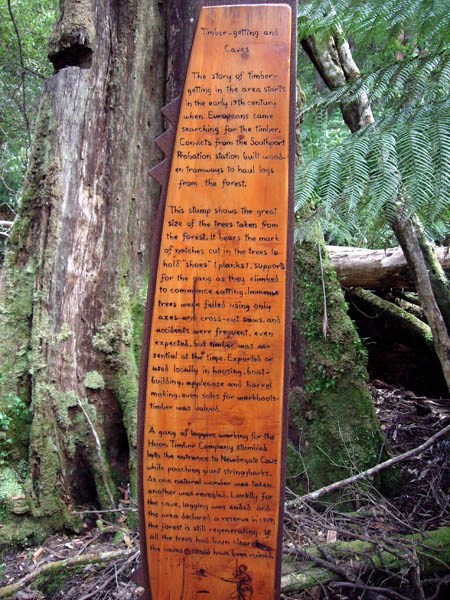 Timber-getting and
Caves
The story of timber-
getting in the area starts
in the early 19th century
when Europeans came
searching for the timber.
Convicts from the Southport
Probation station built wood-
en tramways to haul logs
from the forest.
This stump shows the great
size of the trees taken from
the forest. It bears the mark
of notches cut in the trees to
hold "shoes" (planks), supports
for the gang as they climbed
to commence cutting. Immense
trees were felled using only
axes and cross-cut saws, and
accidents were frequent, even
expected, but timber was es-
sential at the time. Exported or
used locally in housing, boat-
building, applecase and barrel
making, even soles for workboots-
timber was valued.
A gang of loggers working for the
Huon Timber Company stumbled
into the entrance to Newdegate Cave
while poaching giant stringybarks.
As one natural wonder was taken,
another was revealed. Luckily for
the cave, logging was ended and
the area declared a reserve in 1919,
the forest is still regenerating. If
all the trees had been cleared
the caves could have been ruined.